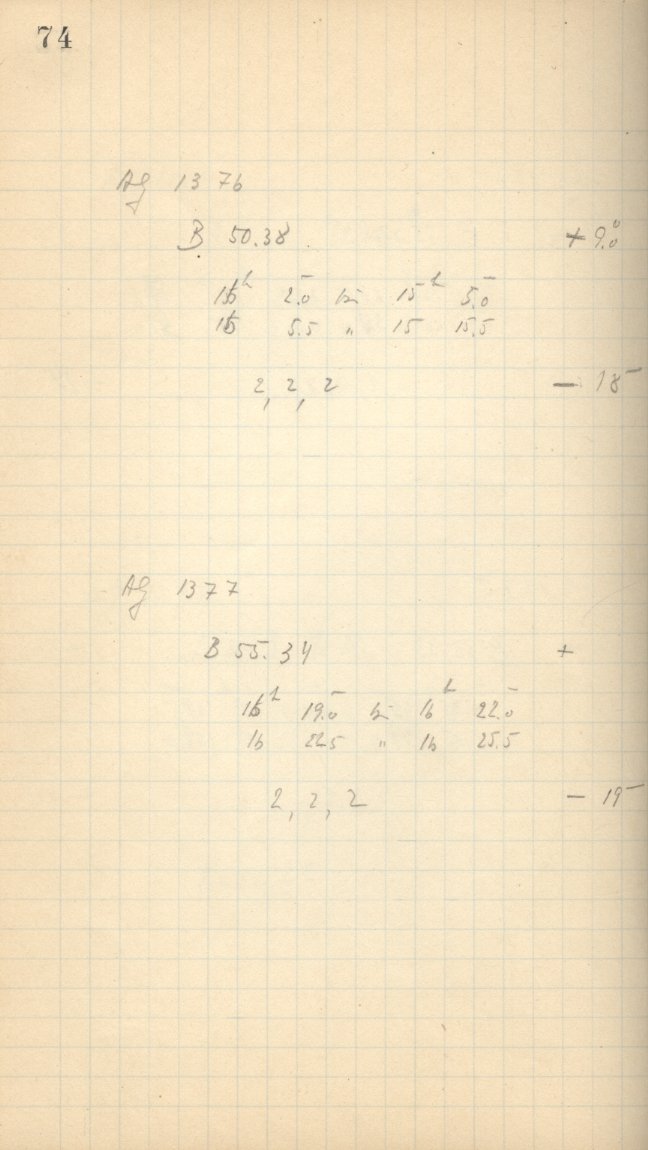 74
Ag 1376
B 50.38 + 9.0°
15ʰ 2.0ᵐ bis 15ʰ 5.0ᵐ
15 5.5 " 15 15.5
2, 2, 2 — 18ᵐ
Ag 1377
B 55.34 +
16ʰ 19.0ᵐ bis 16ʰ 22.0ᵐ
16 22.5 " 16 25.5
2, 2, 2 — 19ᵐ